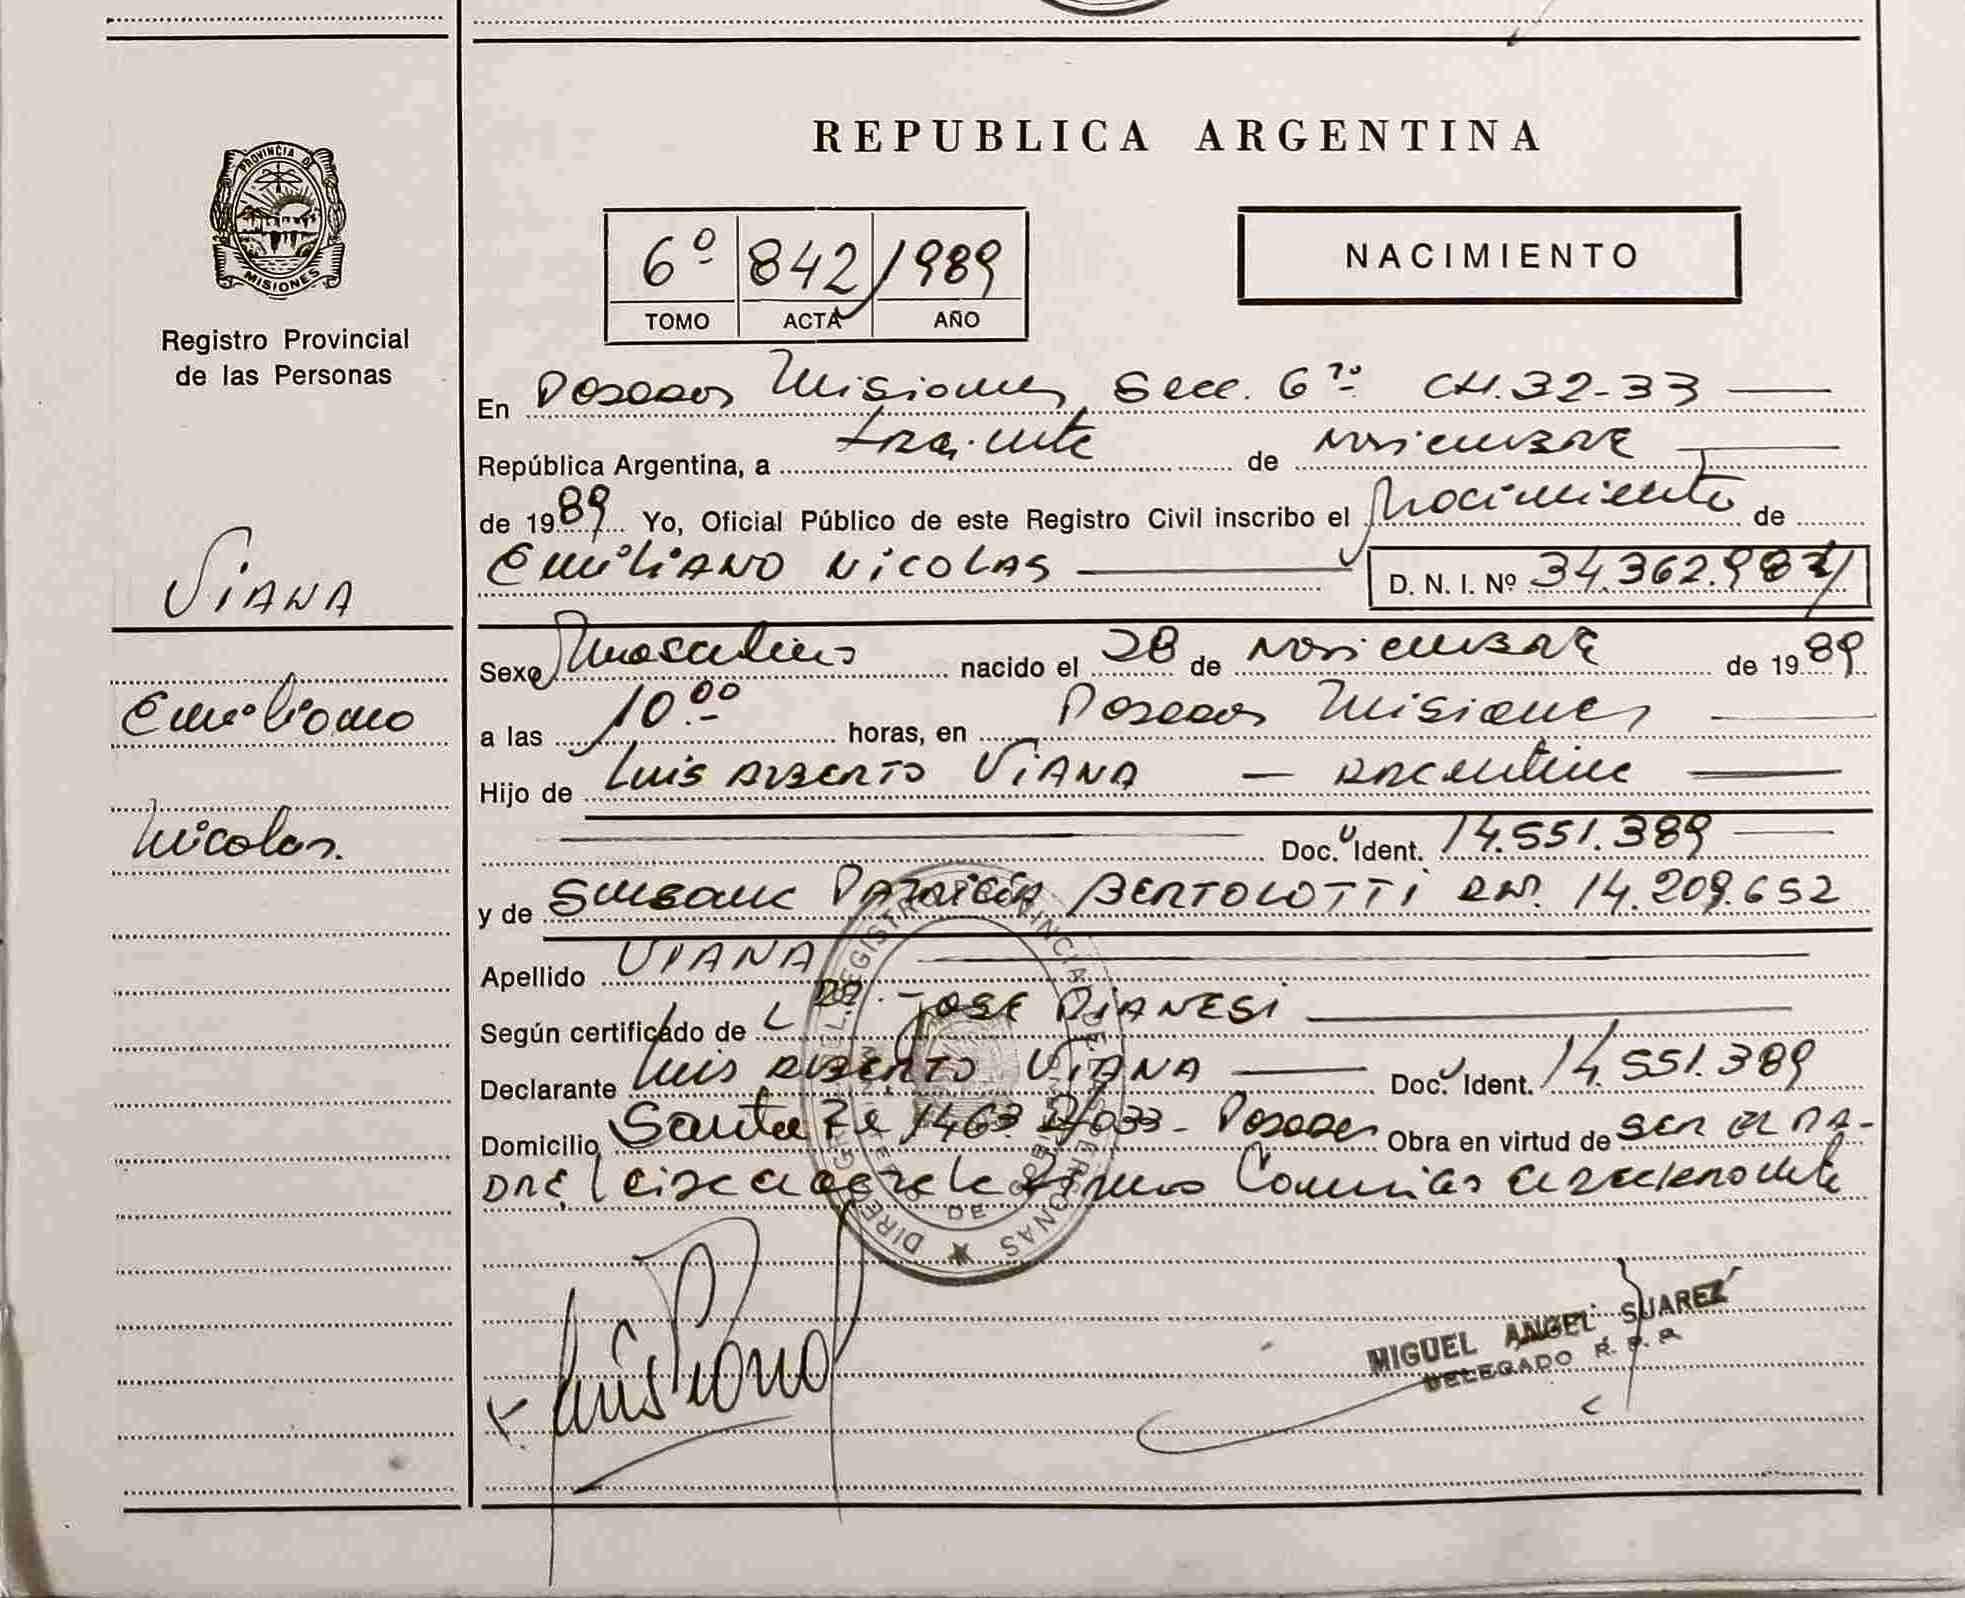 REPUBLICA ARGENTINA
PROVINCIA DE
MISIONES
Registro Provincial
de las Personas
6º 842 / 1989
TOMO ACTA AÑO
NACIMIENTO
En Posadas Misiones Secc. 6ª CH. 32-33
República Argentina, a treinta de noviembre
de 1989 Yo, Oficial Público de este Registro Civil inscribo el Nacimiento de
EMILIANO NICOLAS D. N. I. Nº
VIANA
Sexo Masculino nacido el 28 de noviembre de 1989
Emiliano
a las 10:00 horas, en Posadas Misiones
Hijo de Luis ALBERTO VIANA — ARGENTINO
Nicolas.
Doc. Ident. 14.551.389
y de PATRICIA BERTOLOTTI 14.209.652
Apellido VIANA
Según certificado de JOSE
Declarante Luis ALBERTO VIANA Doc. Ident. 14.551.389
Domicilio Santa Fe 1463 - Posadas Obra en virtud de SER EL PA-
DRE
MIGUEL ANGEL SUAREZ
DELEGADO R. P. P.